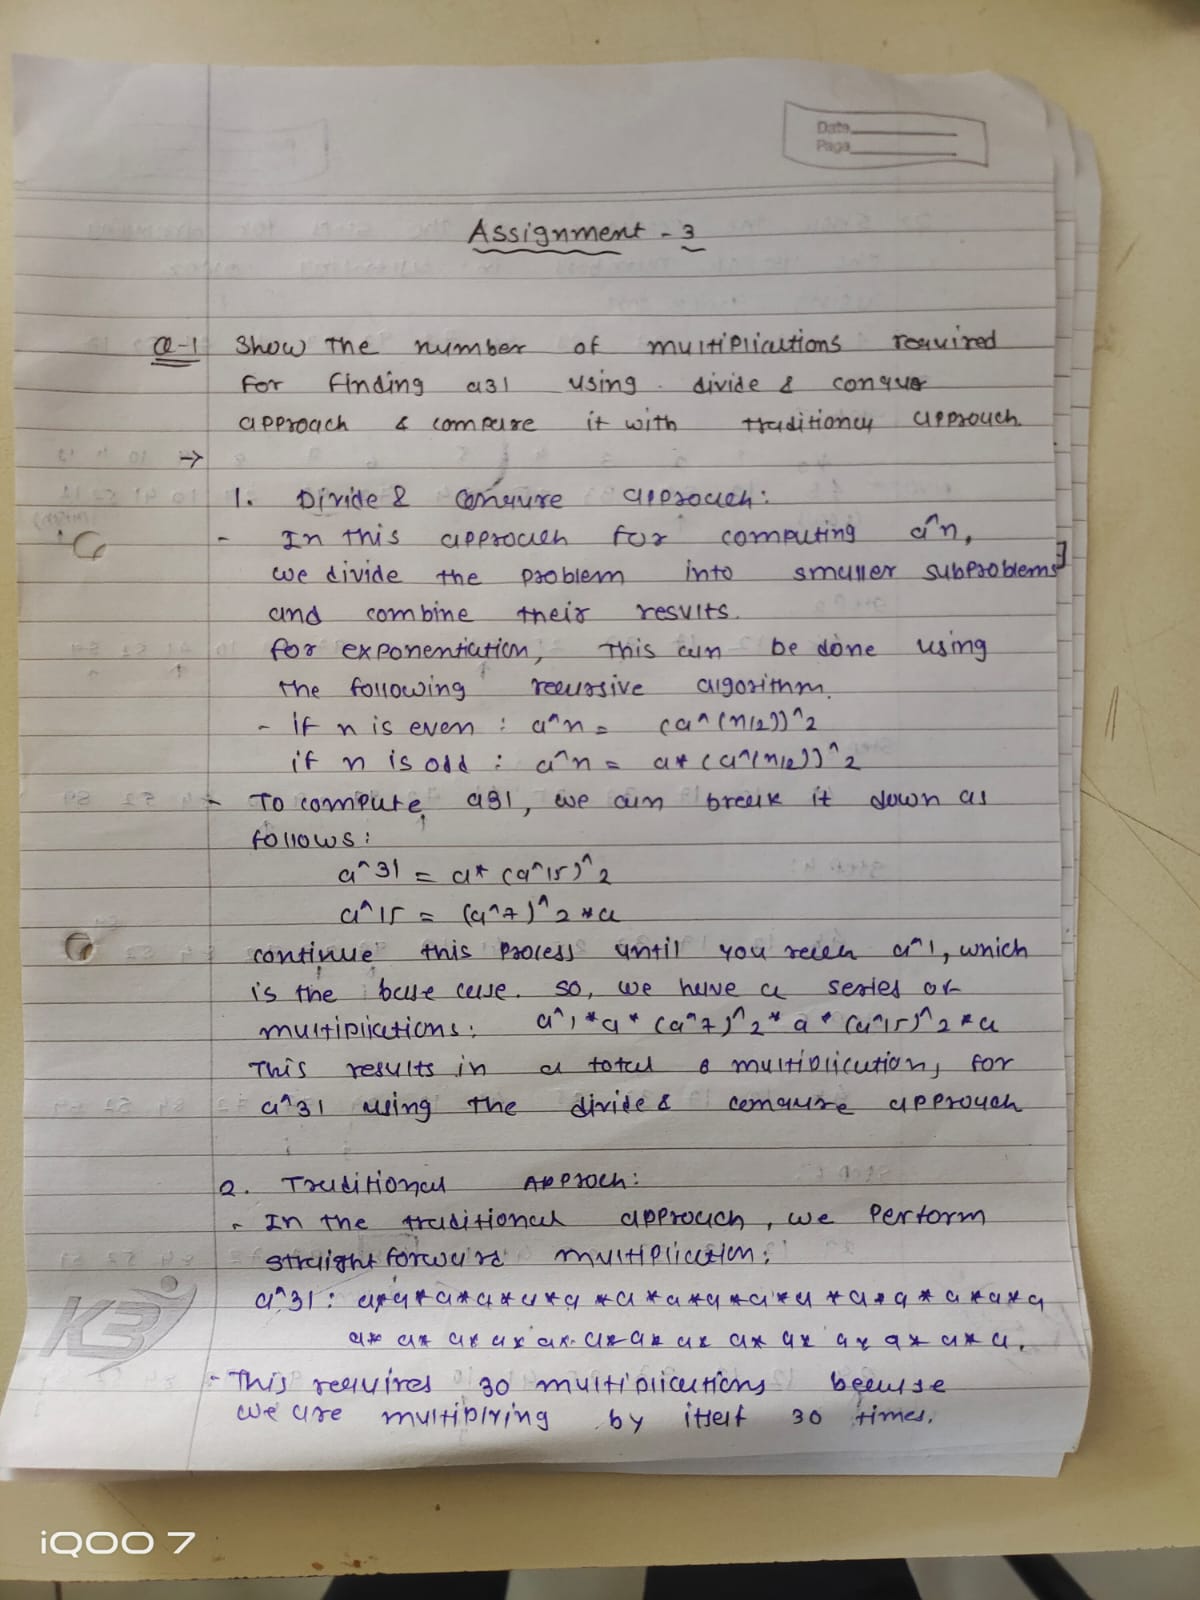 Date
Page
Assignment - 3
Q-1 Show the number of multiplications required
for finding a31 using divide & conquer
approach & compare it with traditional approach.
→
1. Divide & Conqure approach:
- In this approach for computing a^n,
we divide the problem into smaller subproblems
and combine their results.
for exponentiation, this can be done using
the following recursive algorithm.
- if n is even : a^n = (a^(n/2))^2
if n is odd : a^n = a* (a^(n/2))^2
- To compute a31, we can break it down as
follows:
a^31 = a* (a^15)^2
a^15 = (a^7)^2 *a
continue this process until you reach a^1, which
is the base case. so, we have a series of
multiplications: a^1 *a* (a^7)^2 * a * (a^15)^2 *a
This results in a total 8 multiplication, for
a^31 using the divide & conqure approach
2. Traditional Approch:
- In the traditional approach, we perform
straight forward multiplication:
a^31: a*a*a*a*a*a*a*a*a*a*a*a*a*a*a*a
a* a* a* a* a* a* a* a* a* a* a* a* a* a.
- This requires 30 multiplications because
we are multiplying by itself 30 times.
K3
iQOO 7